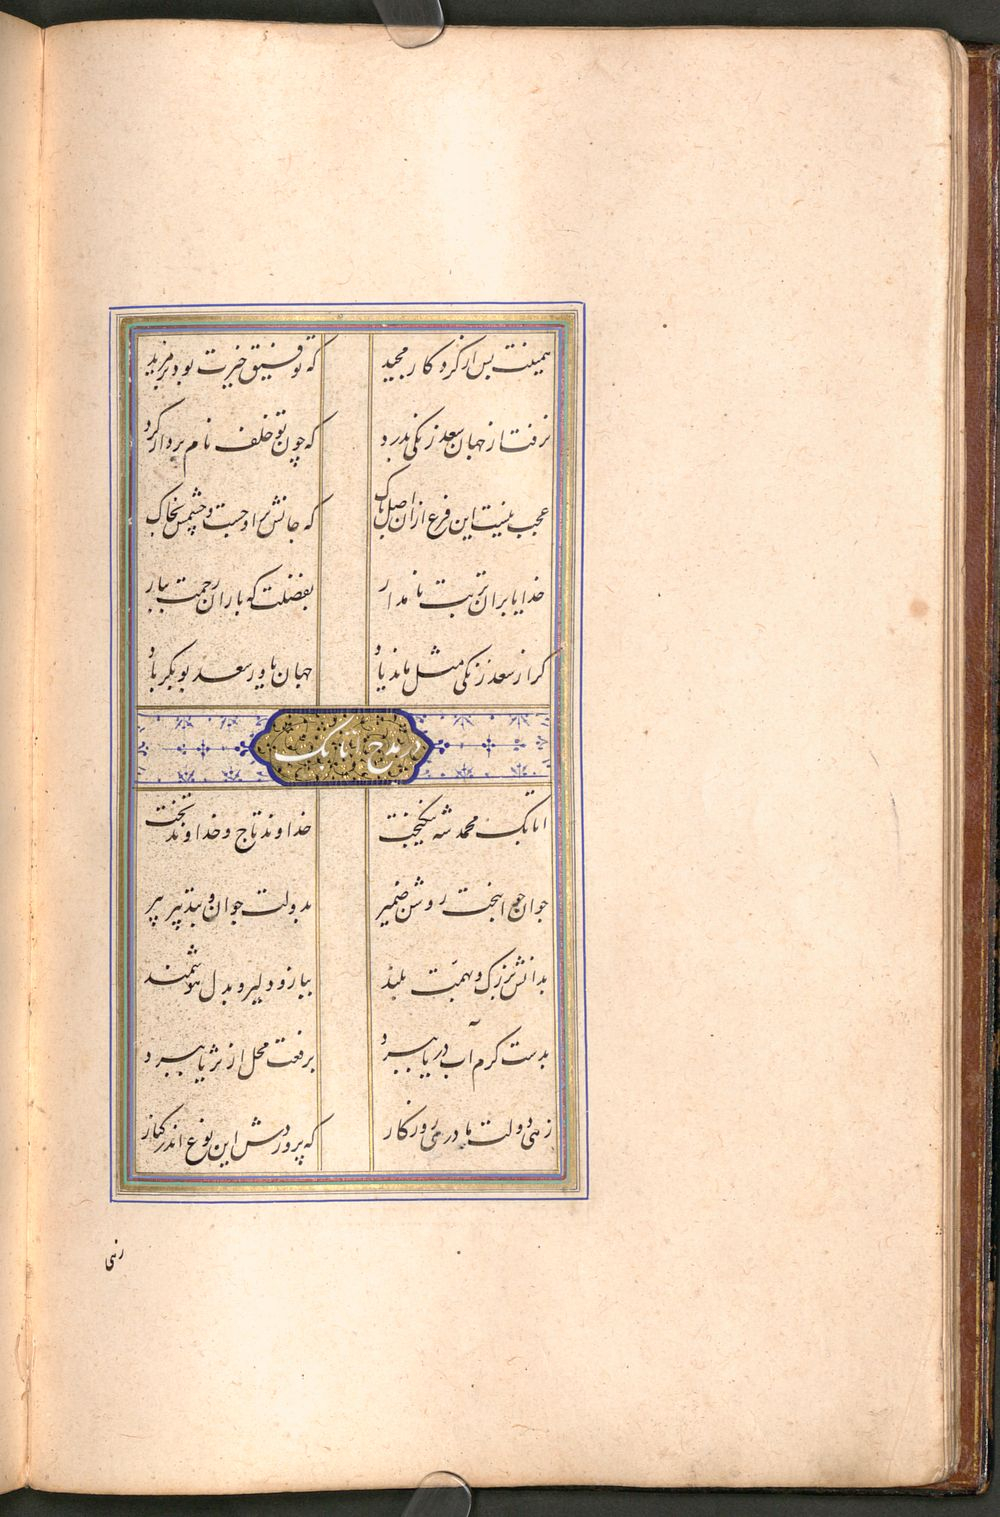 همینت بس از کردکار مجید که توفیق خیرت بود بر مزید
نرفت از جهان سعد زنکی بدرد که چون تو خلف نام بردار کرد
عجب نیست این فرع ازان اصل پاک که جانش بر اوجست و چشمش بخاک
خدایا بران تربت نامدار بفضلت که باران رحمت ببار
کر از سعد زنکی مثل ماند یاد جهان یاور سعد بوبکر باد
در مدح اتابک
اتابک محمد شه نیکبخت خداوند تاج و خداوند تخت
جوان جوانبخت روشن ضمیر بدولت جوان و بتدبیر پیر
بدانش بزرک و بهمت بلند ببازو دلیر و بدل هوشمند
بدست کرم آب دریا ببرد برفعت محل از ثریا ببرد
زهی دولت مادر روزکار که پروردش این نوع اندر کنار
زهی